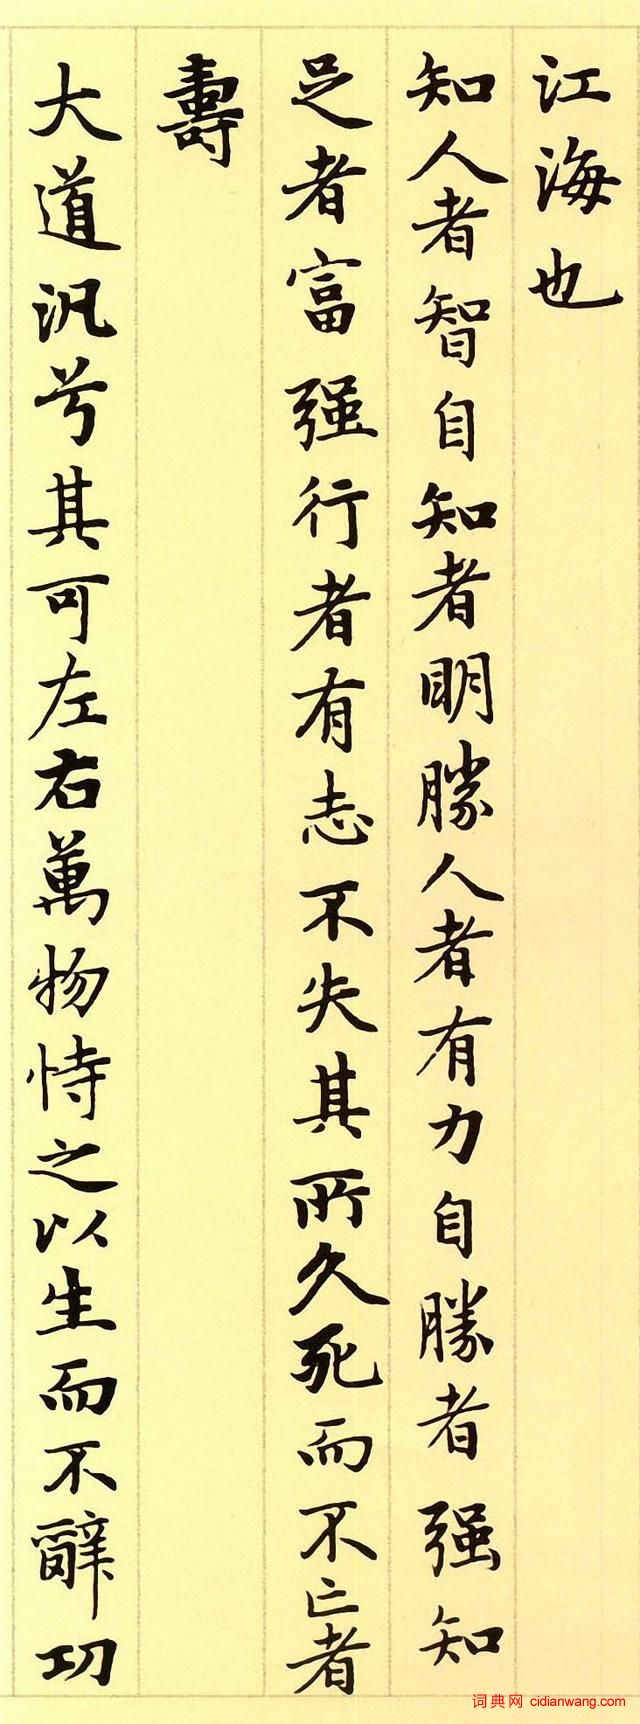 江海也
知人者智自知者明勝人者有力自勝者强知
足者富强行者有志不失其所久死而不亡者
壽
大道汎兮其可左右萬物恃之以生而不辭功
词典网 cidianwang.com